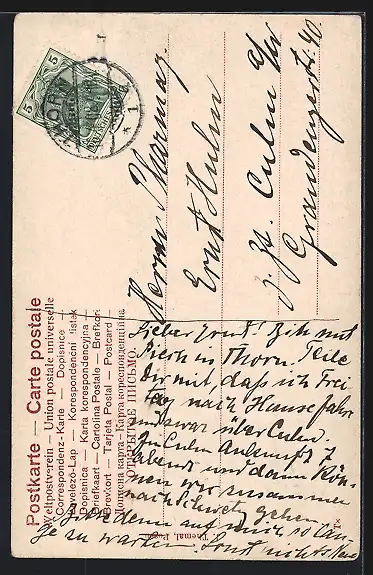 Postkarte — Carte postale
Weltpostverein — Union postale universelle
Correspondenz-Karte — Dopisnice
Levelező-Lap — Korespondenční lístek
Dopisnica — Karta korespondencyjna
Briefkaart — Cartolina Postale — Brefkort
Brevkort — Tarjeta Postal — Postcard
ОТКРЫТОЕ ПИСЬМО.
5
5
THORN
1
Herrn
Ernst
z. Zt. Culm
Graudenzerstr. 40
Lieber Ernst! Bin mit
in Thorn. Teile
Dir mit, daß ich Frei
tag nach Hause fahre
und zwar über Culm.
In Culm Ankunft 7
abends und dann kön-
nen wir zusammen
nach Schwetz gehen.
Bitte denn auf mich so lan-
ge zu warten. Sonst nichts